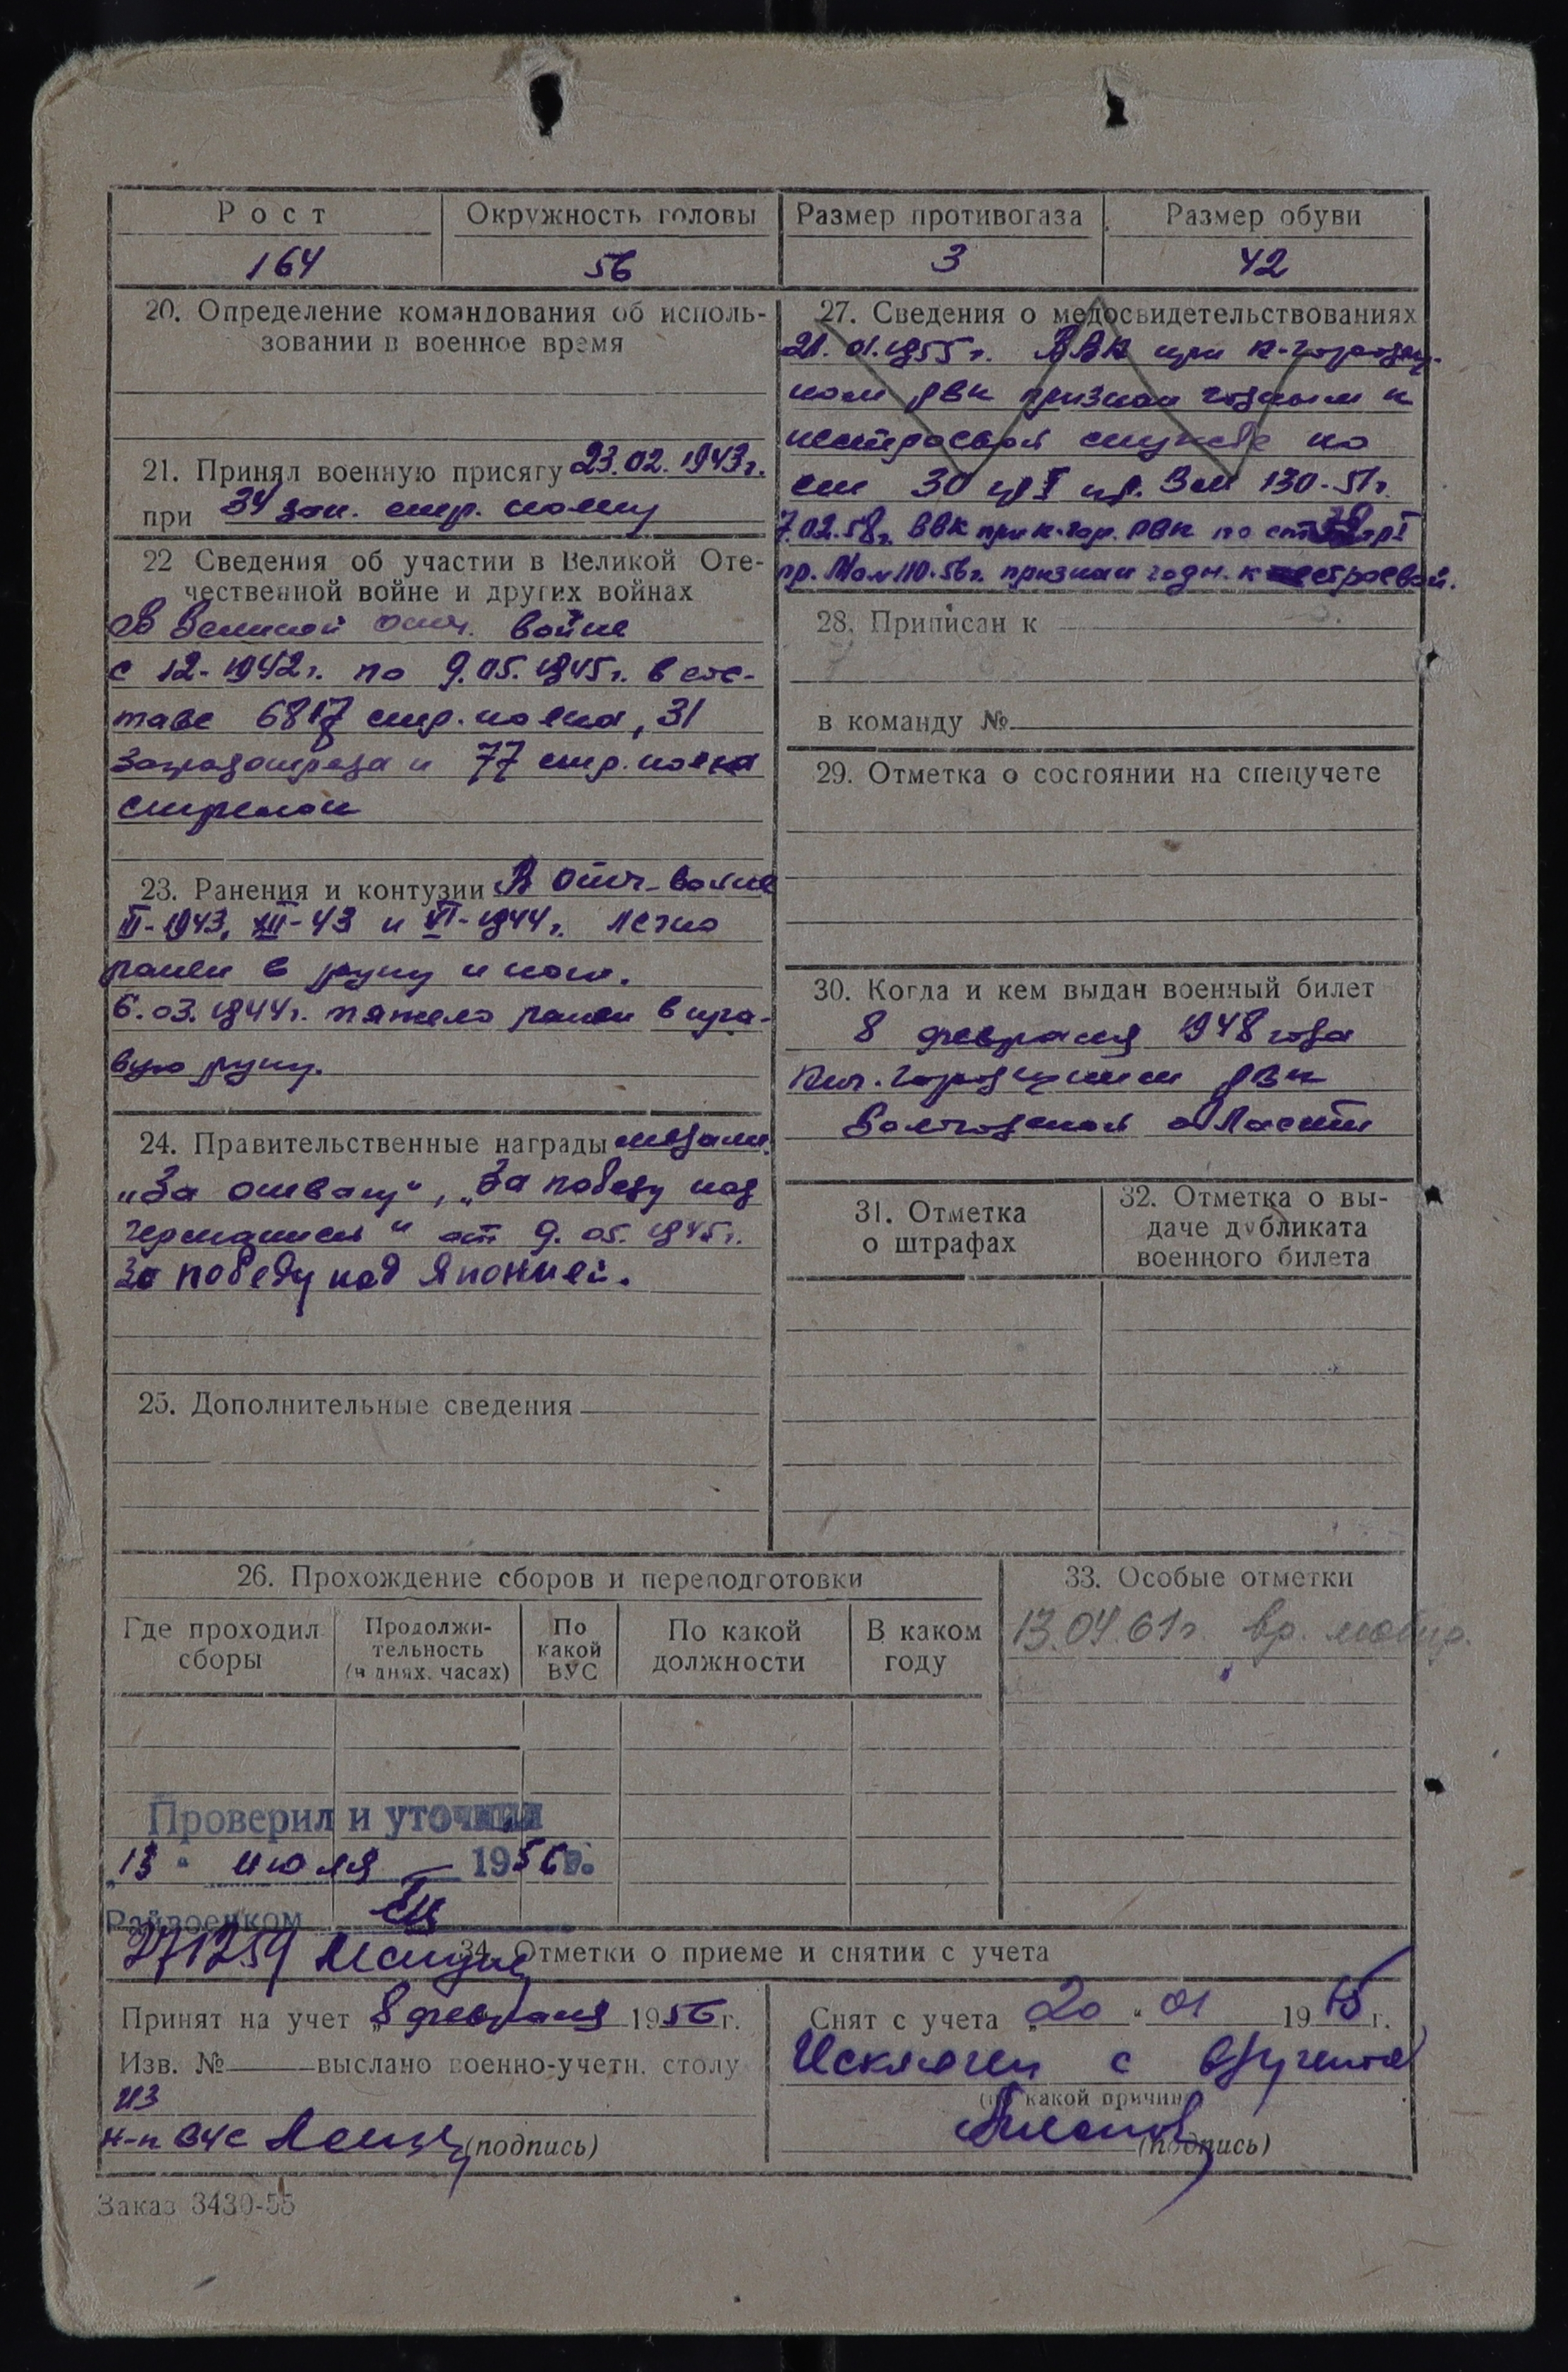 Рост Окружность головы Размер противогаза Размер обуви
164 56 3 42
20. Определение командования об исполь-
зовании в военное время
21. Принял военную присягу 23.02.1943г.
при 34 зап. стр. полку
22 Сведения об участии в Великой Оте-
чественной войне и других войнах
В Великой отеч. войне
с 12-1942г. по 9.05.1945г. в сос-
таве 6817 стр. полка, 31
заградотряда и 77 стр. полка
стрелок
23. Ранения и контузии В отеч. войне
III-1943, XII-43 и VI-1944г. легко
ранен в руку и ноги.
6.03.1944г. тяжело ранен в пра-
вую руку.
24. Правительственные награды медали
„За отвагу“, „За победу над
Германией“ от 9.05.1945г.
За победу над Японией.
25. Дополнительные сведения
27. Сведения о медосвидетельствованиях
21.01.1955г. ВВК при К-Городец-
ком РВК признан годным к
нестроевой службе по
ст 30 гр I пр. ВМ 130-51г.
7.02.58г. ВВК при К-гор. РВК по ст гр I
пр. МО №110-56г. признан годн. к строевой.
28. Приписан к
в команду №
29. Отметка о состоянии на спецучете
30. Когда и кем выдан военный билет
8 февраля 1948 года
Кич. Городецким РВК
Вологодской области
31. Отметка
о штрафах
32. Отметка о вы-
даче дубликата
военного билета
26. Прохождение сборов и переподготовки
Где проходил
сборы
Продолжи-
тельность
(в днях. часах)
По
какой
ВУС
По какой
должности
В каком
году
33. Особые отметки
13.04.61г. вр. мобир.
Проверил и уточнил
„13“ июля 1956г.
Райвоенком
271259
34. Отметки о приеме и снятии с учета
Принят на учет „8 февраля 1956г.
Изв. № выслано военно-учетн. столу
из
н-к ВУС (подпись)
Снят с учета „20“ 01 1965г.
Исключен с в/учета
(по какой причине)
(подпись)
Заказ 3430-55